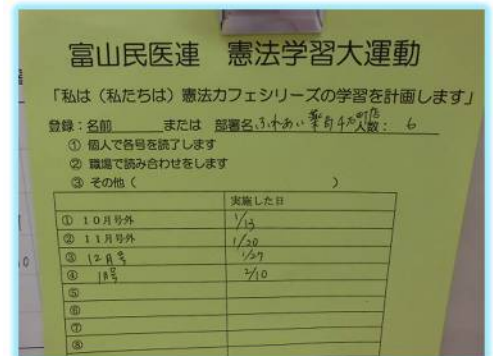 富山民医連 憲法学習大運動
「私は(私たちは)憲法カフェシリーズの学習を計画します」
登録:名前 または 部署名 ふれあい薬局 人数: 6
① 個人で各号を読了します
② 職場で読み合わせをします
③ その他( )
実施した日
① 10月号外 1/13
② 11月号外 1/20
③ 12月号 1/27
④ 1月号 2/10
⑤
⑥
⑦
⑧